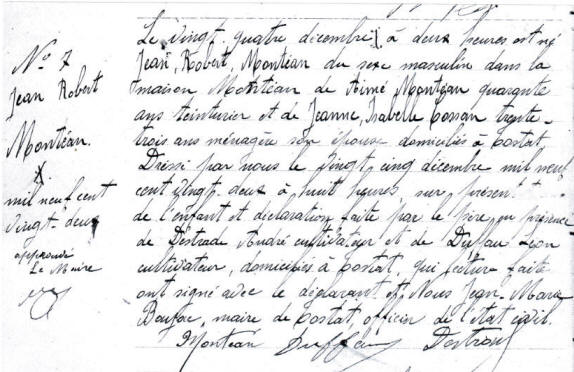 No 7
Jean Robert
Montéan.
mil neuf cent
vingt-deux
approuvé
Le Maire
Le vingt quatre décembre, à deux heures est né
Jean, Robert, Montéan du sexe masculin dans la
maison Montéan de Aimé Montéan quarante
ans teinturier et de Jeanne, Isabelle Cossan trente-
trois ans ménagère son épouse domiciliés à Costat.
Dressé par nous le vingt cinq décembre mil neuf
cent vingt-deux à huit heures sur présent
de l'enfant et déclaration faite par le père en présence
de Destrade André cultivateur et de Duffau Léon
cultivateur, domiciliés à Costat, qui lecture faite
ont signé avec le déclarant et Nous Jean-Marie
maire de Costat, officier de l'état civil.
Montéan Duffau Destrade